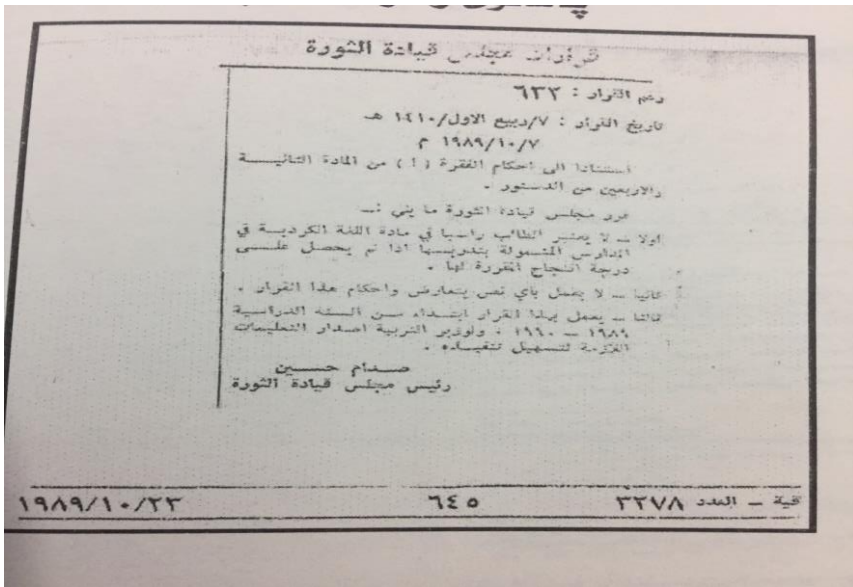 قرارات مجلس قيادة الثورة
رقم القرار : ٦٣٣
تاريخ القرار : ٧/ربيع الاول/١٤١٠ هـ
١٩٨٩/١٠/٧ م
استنادا الى احكام الفقرة ( أ ) من المادة الثانيـــة
والاربعين من الدستور .
قرر مجلس قيادة الثورة ما يلي :ـ
اولا ــ لا يعتبر الطالب راسبا في مادة اللغة الكرديــة في
المدارس المشمولة بتدريسها اذا لم يحصل علـــى
درجة النجاح المقررة لها .
ثانيا ــ لا يعمل باي نص يتعارض واحكام هذا القرار .
ثالثا ــ يعمل بهذا القرار ابتـداء مــن السنة الدراسية
١٩٨٩ ــ ١٩٩٠ ، ولوزير التربية اصدار التعليمات
اللازمة لتسهيل تنفيـذه .
صــدام حســـين
رئيس مجلس قيادة الثورة
ــ العدد ٣٢٧٨
٦٤٥
١٩٨٩/١٠/٢٣